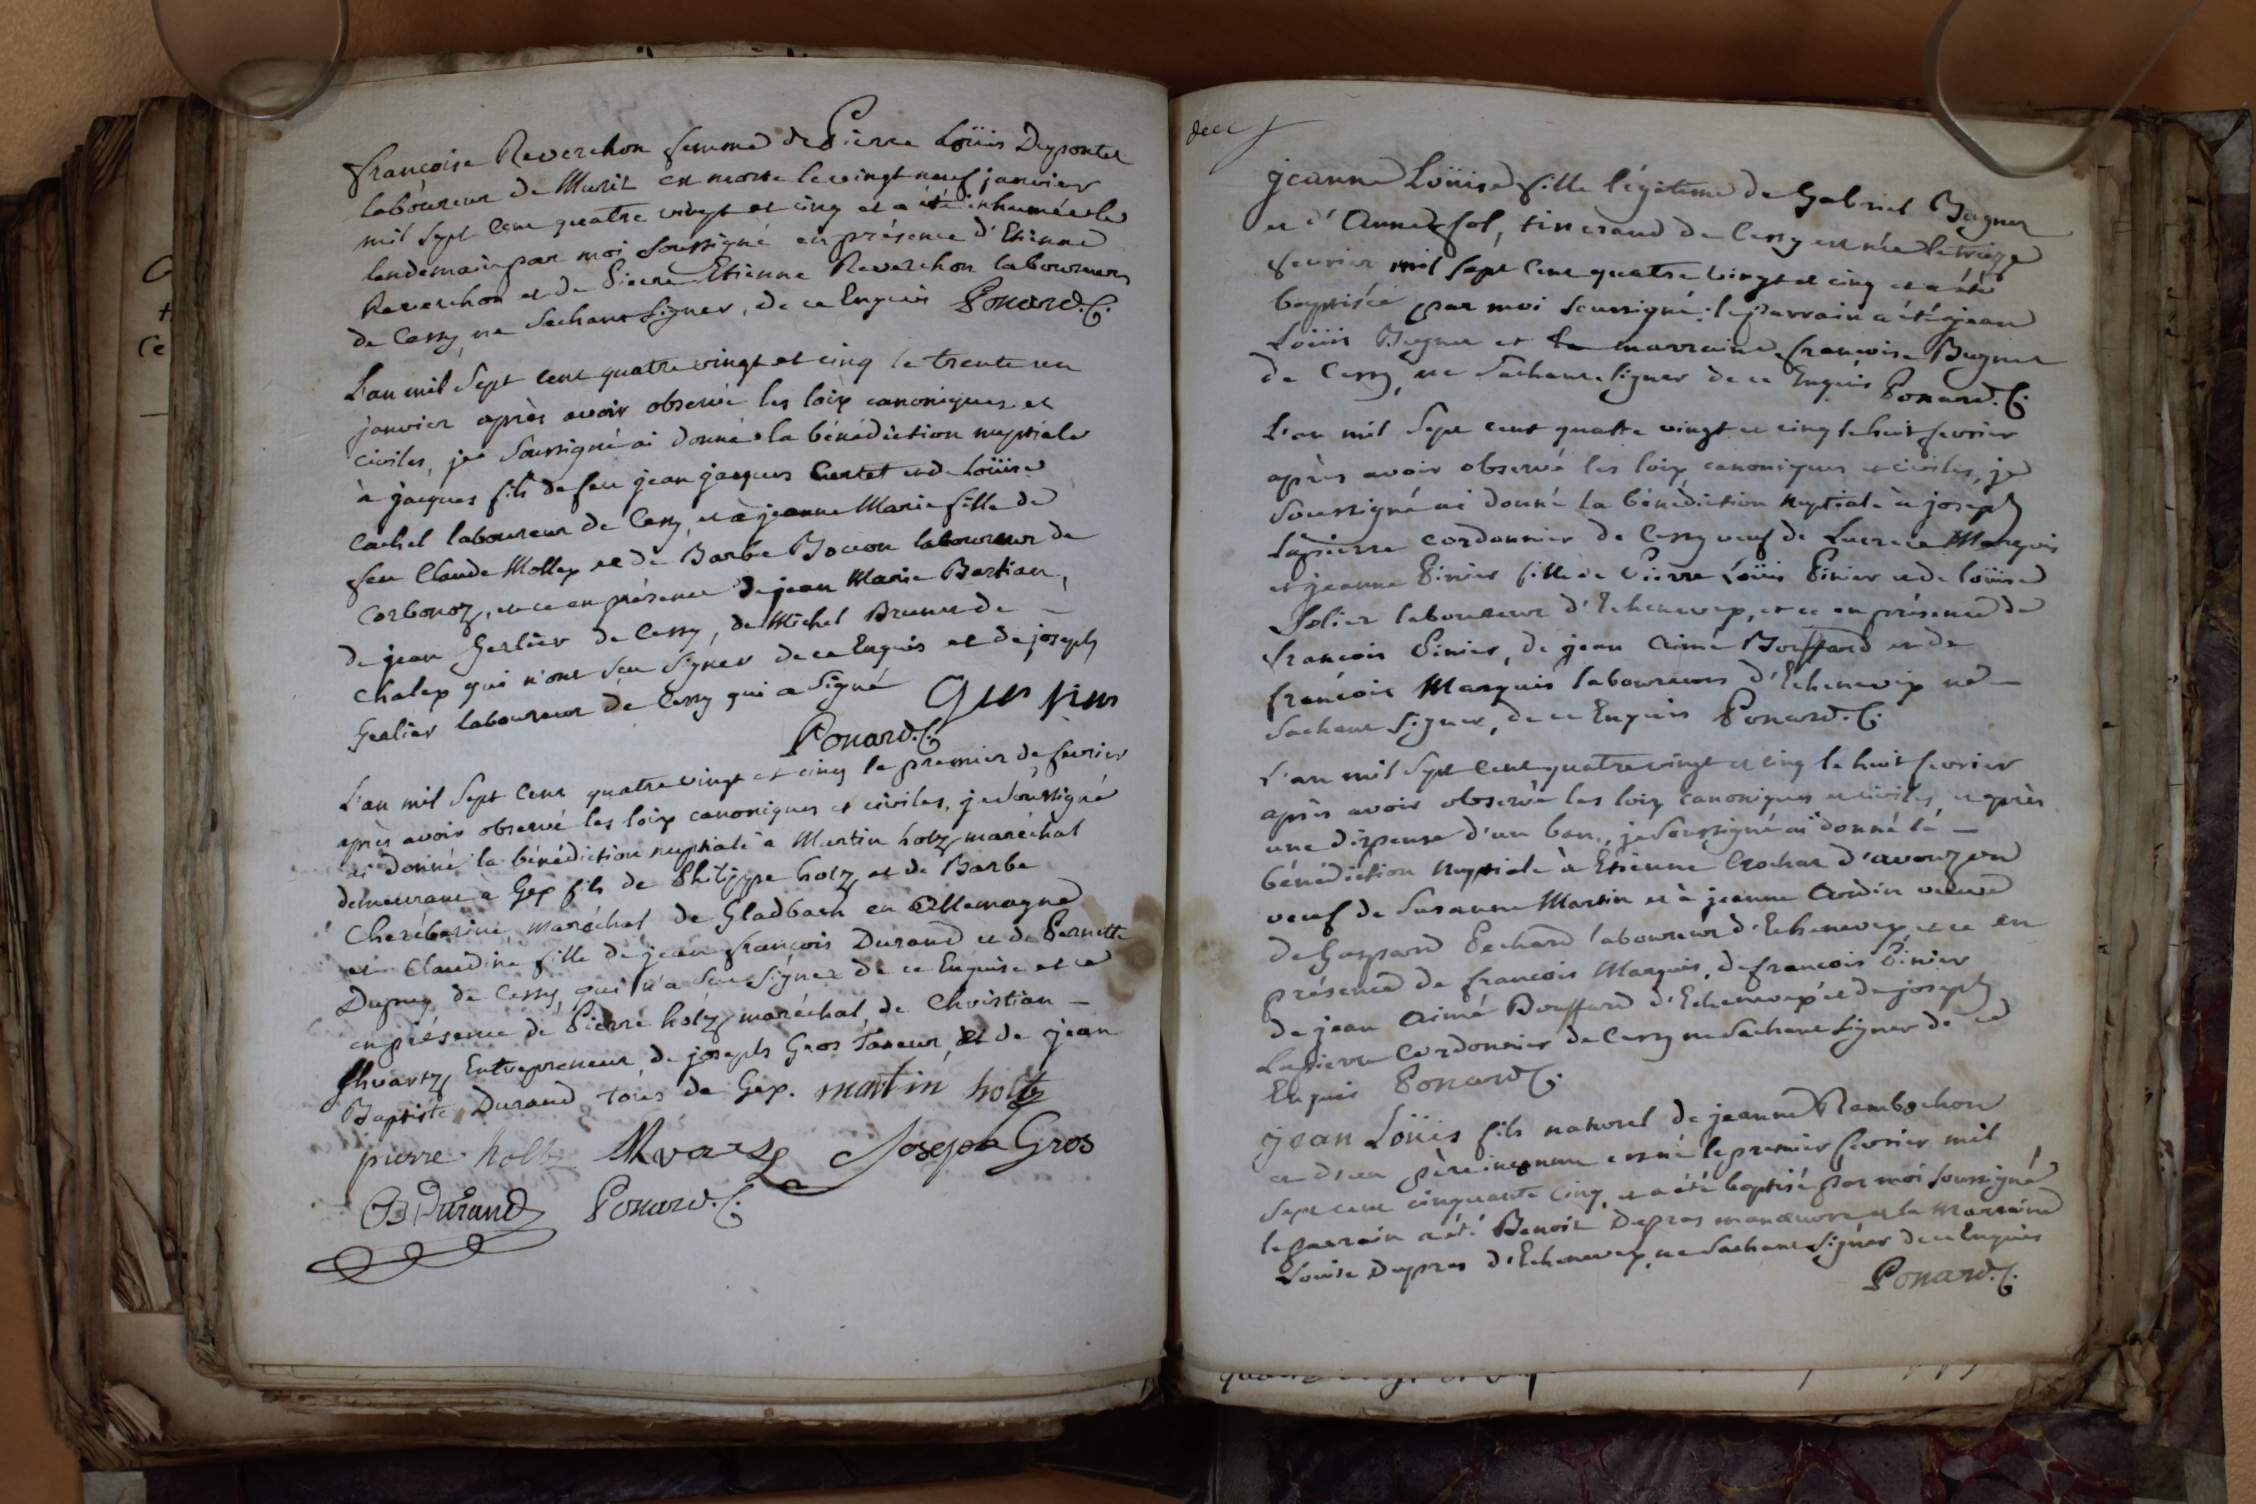 françoise Reverchon femme de Pierre Loüis Dupontet
laboureur de Murit est morte le vingt neuf janvier
mil sept cent quatre vingt et cinq et a été inhumée le
lendemain par moi soussigné en présence d'Etienne
Reverchon et de Pierre Etienne Reverchon laboureurs
de Cessy ne sachant signer, de ce Enquis Ponard. C.
L'an mil sept cent quatre vingt et cinq le trente un
janvier après avoir observé les loix canoniques et
civiles, je soussigné ai donné la bénédiction nuptiale
à jacques fils de feu jean jacques et de Loüise
Cachet laboureur de Cessy, et à jeanne Marie fille de
feu Claude Mollex et de Barbe Bocon laboureur de
Corbonoz, et ce en présence de jean Marie Bastian,
de jean Gerlier de Cessy, de Michel Brunet de -
Chalex qui n'ont seu signer de ce Enquis et de joseph
Gerlier laboureur de Cessy qui a signé
Ponard. C.
L'an mil sept cent quatre vingt et cinq le premier de fevrier
après avoir observé les loix canoniques et civiles, je soussigné
ai donné la bénédiction nuptiale à Martin holtz maréchal
demeurant à Gex fils de Philippe holz et de Barbe
maréchal de Gladbach en Allemagne
et Claudine fille de jean françois Durand et de Pernette
Dupuy de Cessy, qui n'a seu signer de ce Enquise et ce
en présence de Pierre holtz maréchal, de Christian -
Shvartz Entrepreneur, de joseph Gros Taneur, et de jean
Baptiste Durand tous de Gex. martin holtz
pierre holtz Shvartz Joseph Gros
JB Durand Ponard. C.
jeanne Loüise fille légitime de Gabriel Bugnet
et d' Anne fol, tisserand de Cessy est née le treize
fevrier mil sept cent quatre vingt et cinq et a été
baptisée par moi soussigné: le parrain a été jean
Loüis Bugnet et la marraine françoise Bugnet
de Cessy, ne sachant signer de ce Enquis Ponard. C.
L'an mil sept cent quatre vingt et cinq le huit fevrier
après avoir observé les loix canoniques et civiles, je
soussigné ai donné la bénédiction nuptiale à joseph
Lapierre cordonnier de Cessy veuf de Lucrece Marquis
et jeanne Pinier fille de Pierre Loüis Pinier et de loüise
laboureur d'Echenevex, et ce en présence de
françois Pinier, de jean Aimé Bouffard et de
françois Marquis laboureurs d'Echenevex ne -
sachant signer, de ce Enquis Ponard. C.
L'an mil sept cent quatre vingt et cinq le huit fevrier
après avoir observé les loix canoniques et civiles, et après
une dispense d'un ban, je soussigné ai donné la -
bénédiction nuptiale à Etienne Crochat d'avouzon
veuf de Susanne Martin et à jeanne veuve
de Gaspard Pechard laboureur d'Echenevex et ce en
présence de françois Marquis, de françois Pinier
de jean Aimé Bouffard d'Echenevex et de joseph
Lapierre Cordonnier de Cessy ne sachant signer de ce
Enquis Ponard C.
jean Loüis fils naturel de jeanne Rambochon
et d'un père inconnu est né le premier fevrier mil
sept cent cinquante cinq, et a été baptisé par moi soussigné
le parrain a été Benoit Dupras manœuvre et la Marraine
Louise Dupras d'Echenevex, ne sachant signer de ce Enquis
Ponard. C.